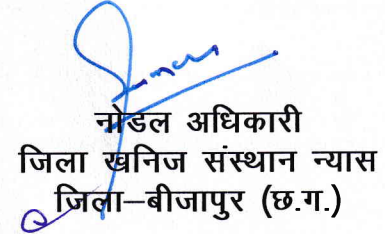 नोडल अधिकारी
जिला खनिज संस्थान न्यास
जिला–बीजापुर (छ.ग.)